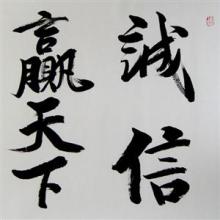 誠信
贏天下